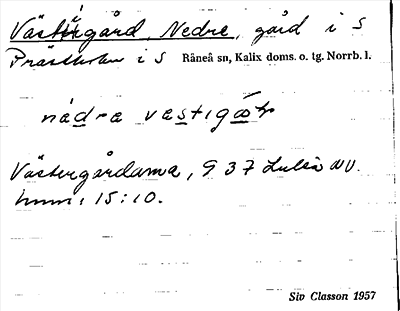 Västigård, Nedre, gård i S
Prästholm i S Råneå sn, Kalix doms. o. tg. Norrb. l.
nádra vastigåɽn
Västergårdarna, 9 37 Luleå NV.
hmn: 15:10.
Siv Classon 1957